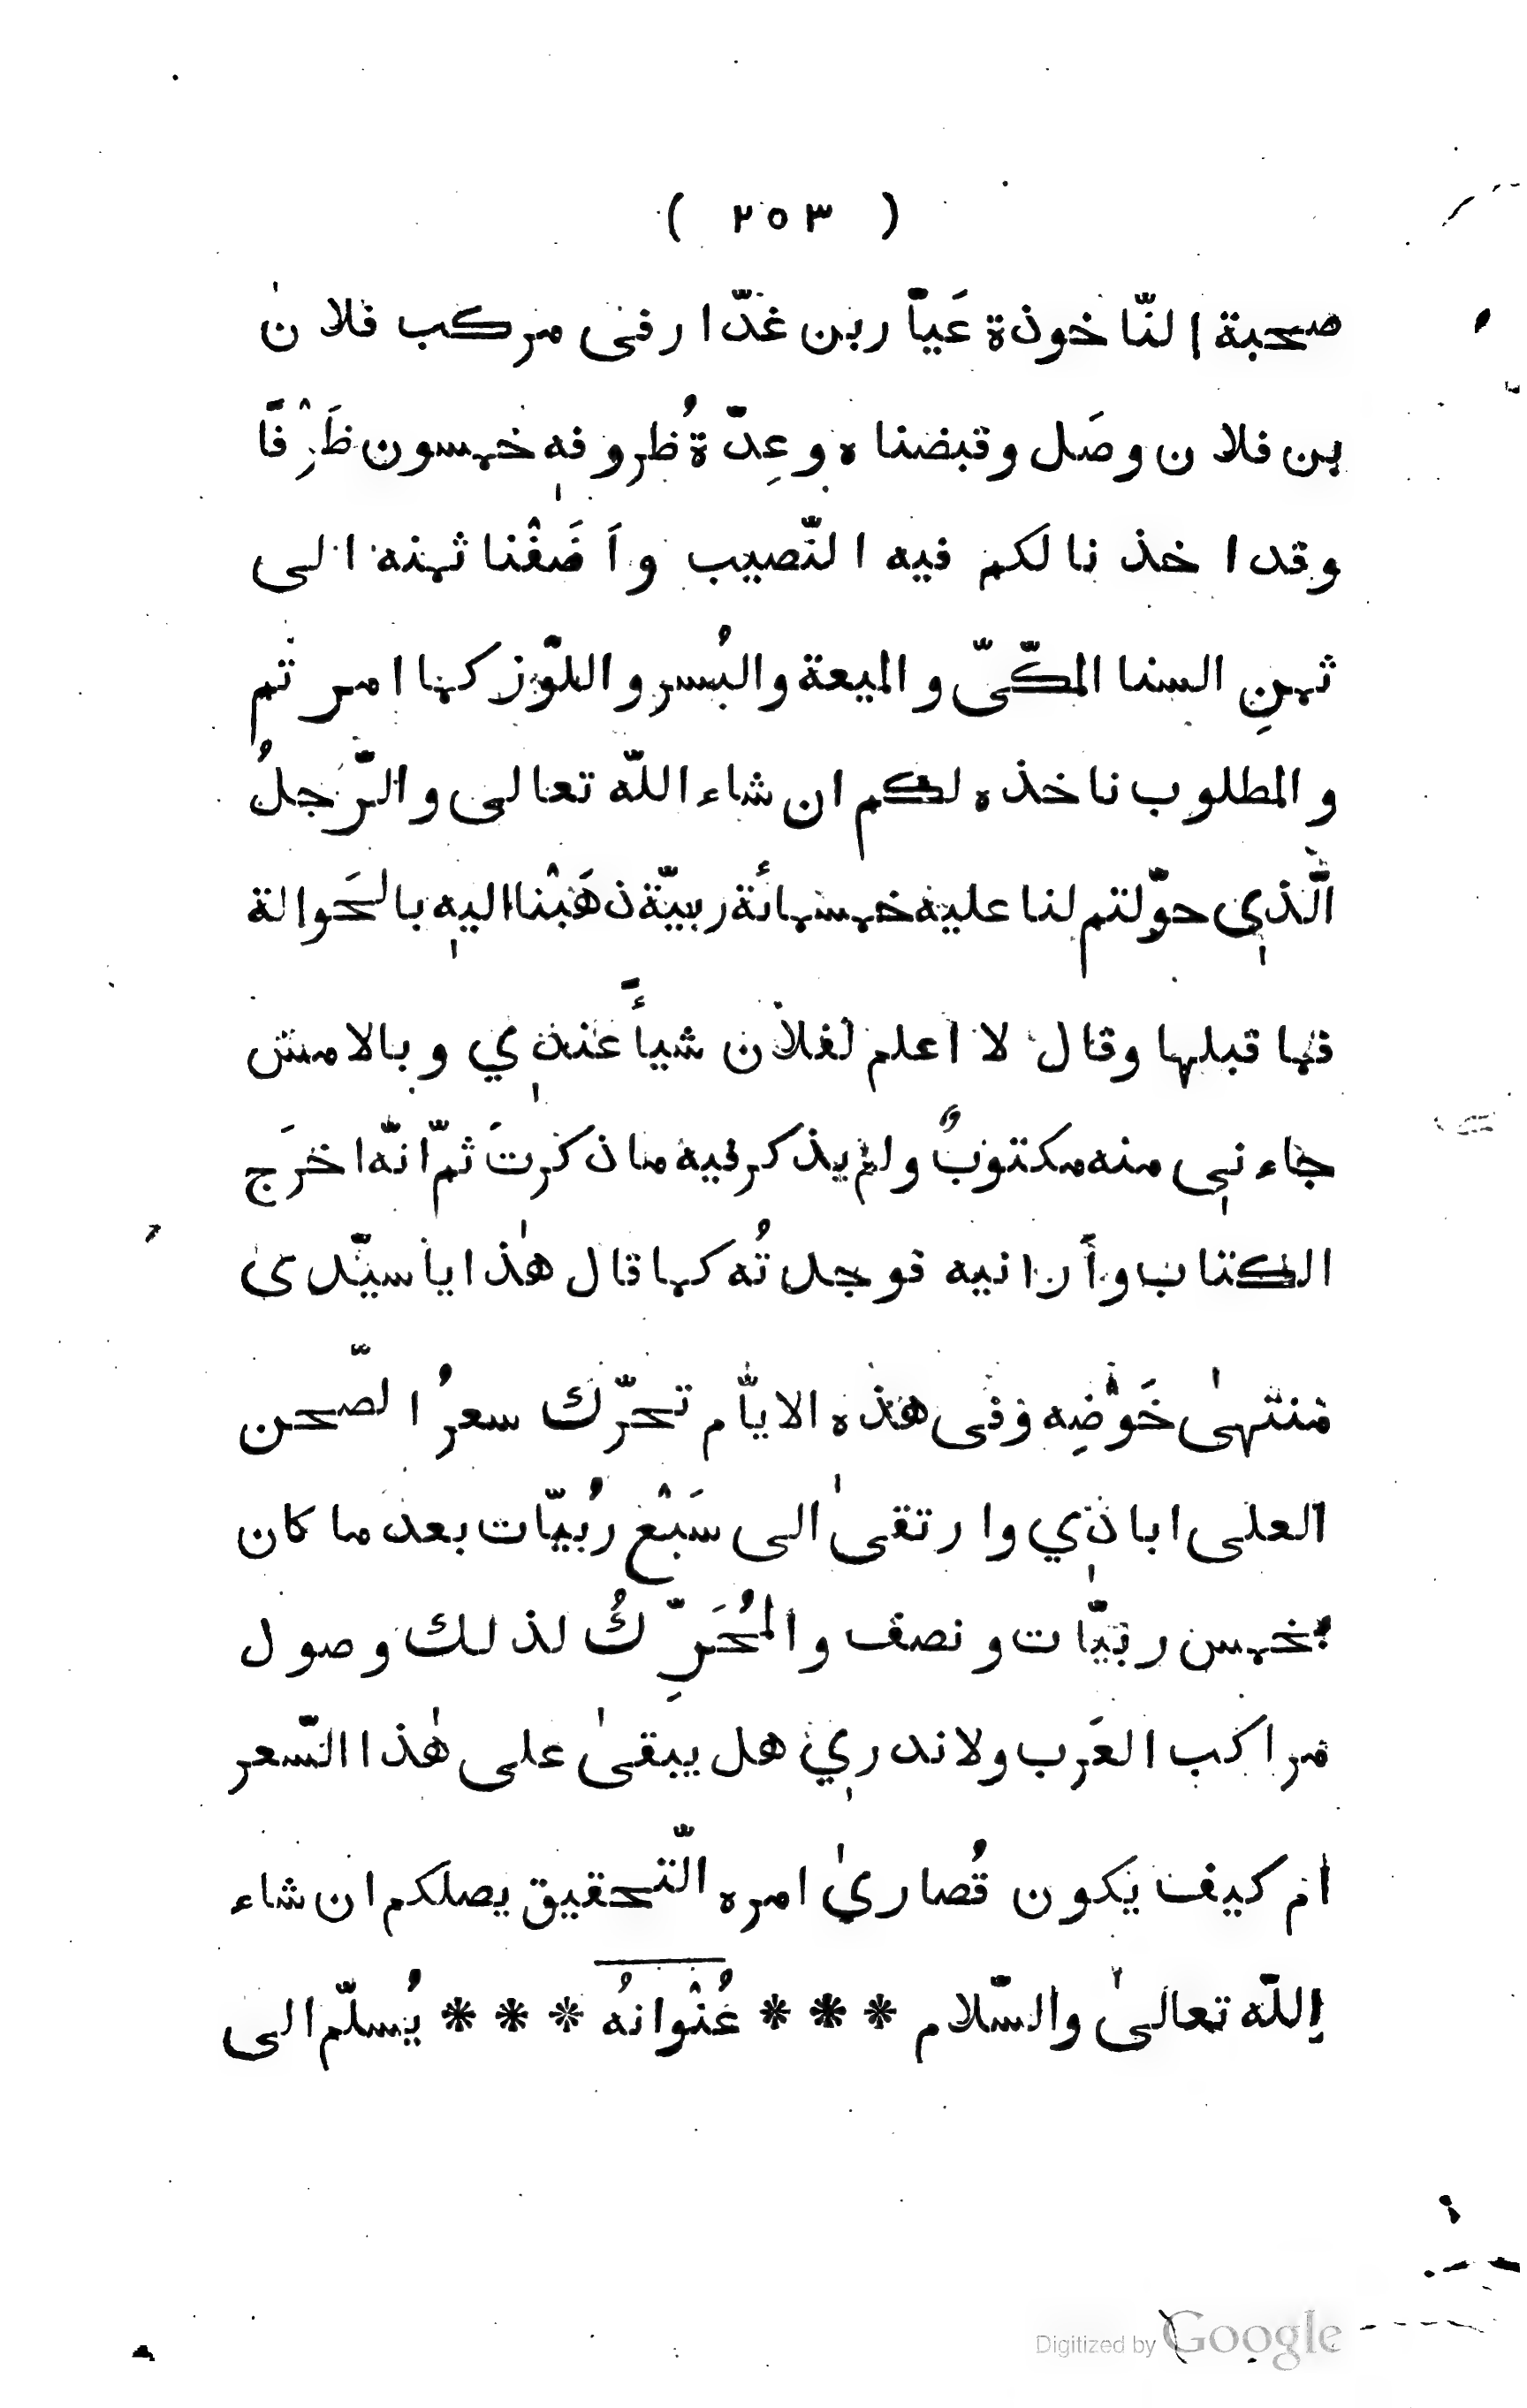 ( ٢٥٣ )
صحبة النّاخوذة عَيّار بن غدّار في مركب فلان
بن فلان وصَل وقبضناه وعِدّة ظُروفه خمسون ظَرْفًا
وقد اخذنا لكم فيه النّصيب واَضَفْنا ثمنه الى
ثمنِ السنا المكّيّ والميعة والبُسر واللّوز كما امرتم
والمطلوب ناخذه لكم ان شاء اللّه تعالى والرّجلُ
الّذي حوّلتم لنا عليه خمسمائة ربيّة ذهَبْنا اليه بالحَوالة
فما قبلها وقال لا اعلم لفلان شيأً عندي وبالامس
جاءني منه مكتوبٌ ولم يذكر فيه ما ذكرتَ ثمّ انّه اخرَج
الكتاب وأرانيه فوجدتُه كما قال هٰذا يا سيّدي
منتهىٰ خَوْضِه وفي هذه الايّام تحرّك سعرُ الصّحن
العلى ابادي وارتقىٰ الى سَبْع رُبيّات بعد ما كان
بخمس ربيّات ونصف والمُحَرِّكُ لذلك وصول
مراكب العَرب ولا ندري هل يبقىٰ على هٰذا السّعر
ام كيف يكون قُصارىٰ امره التّحقيق يصلكم ان شاء
اللّه تعالىٰ والسّلام * * * عُنْوانهُ * * * يُسلّم الى
Digitized by Google